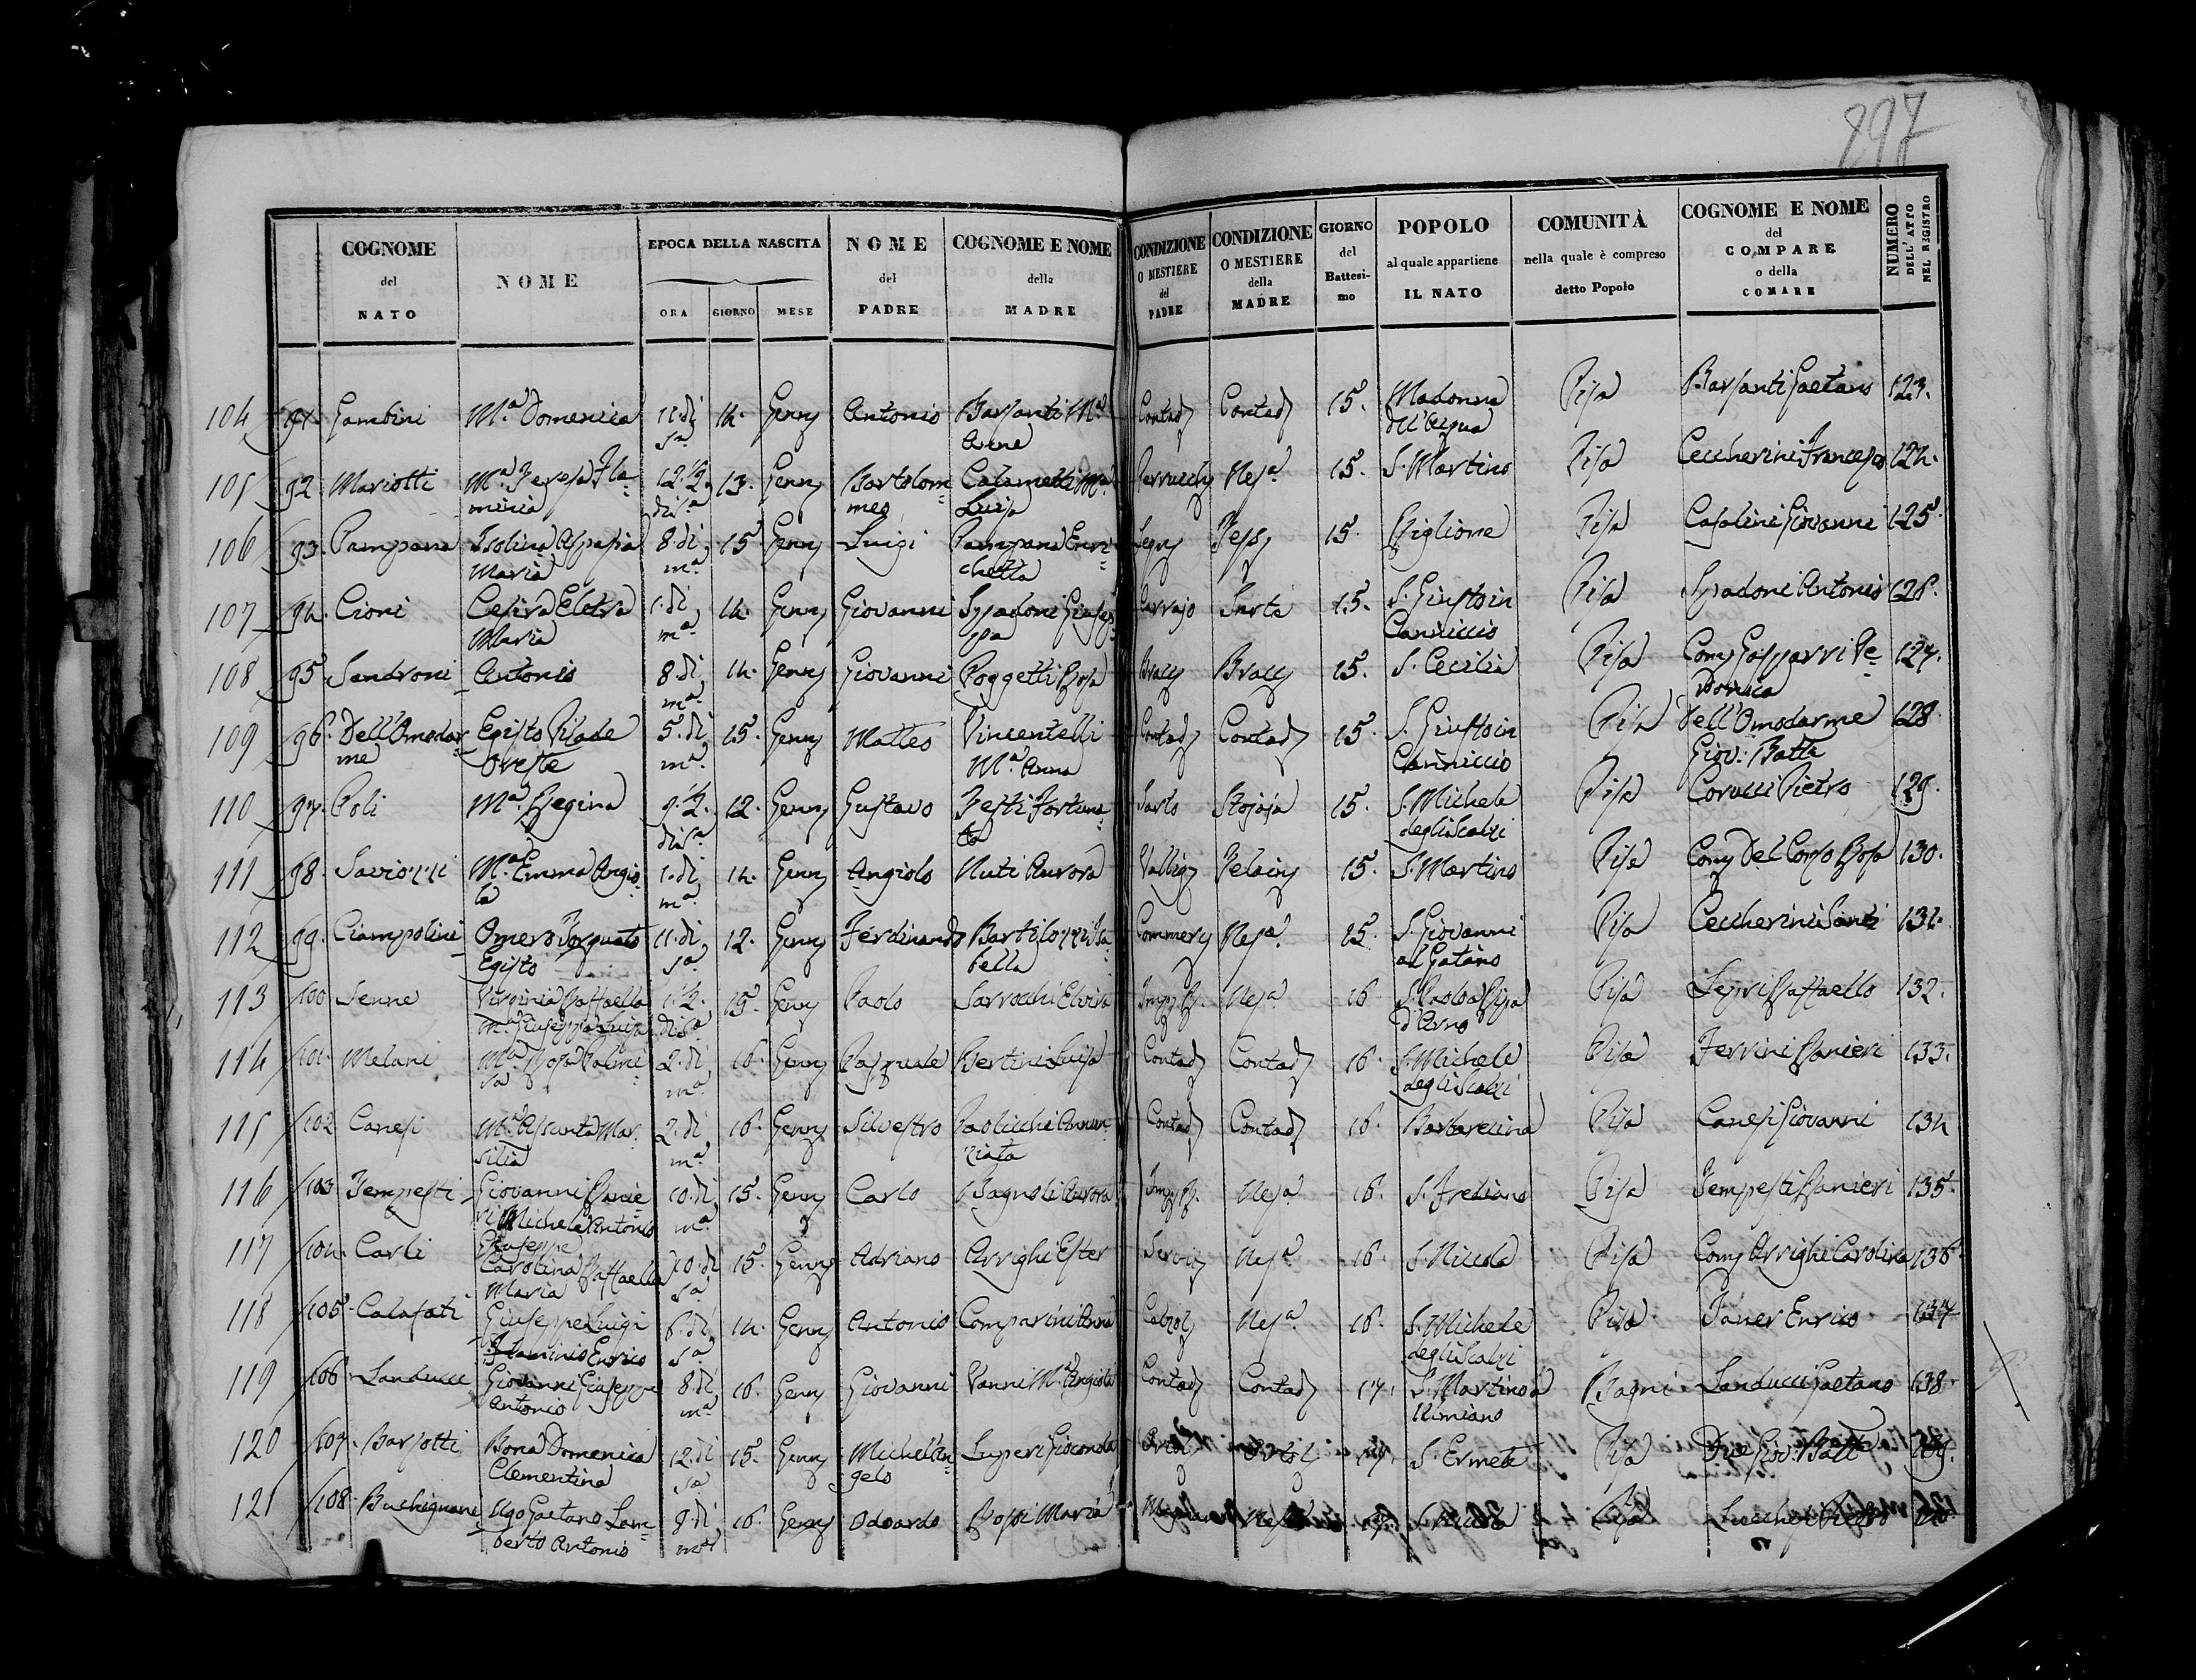 897
COGNOME del NATO
NOME
EPOCA DELLA NASCITA
ORA GIORNO MESE
NOME del PADRE
COGNOME E NOME della MADRE
CONDIZIONE O MESTIERE del PADRE
CONDIZIONE O MESTIERE della MADRE
GIORNO del Battesimo
POPOLO al quale appartiene IL NATO
COMUNITÀ nella quale è compreso detto Popolo
COGNOME E NOME del COMPARE o della COMARE
NUMERO DELL' ATTO NEL REGISTRO
104 91. Gambini Mª Domenica 11. di sª 14. Genn Antonio Barsanti Mª Contad Contad 15. Madonna dell'Acqua Pisa Barsanti Gaetano 123.
105 92 Mariotti Mª Teresa Flaminia 12.½ di sª 13. Genn Bartolommeo Calametti Mª Luisa Nesª 15. S. Martino Pisa Ceccherini Francesco 124.
106 93. Pampana Isolina Aspasia Maria 8. di mª 15 Genn Luigi Pampana Enrichetta Tess 15. Riglione Pisa Casalini Giovanni 125.
107 94. Cioni Cesira Eletra Maria 1. di mª 14. Genn Giovanni Spadoni Giuseppa Sarta 15. S. Giusto in Canniccio Pisa Spadoni Antonio 126.
108 95 Sandroni Antonio 8. di mª 14. Genn Giovanni Poggetti Rosa Bracc Bracc 15. S. Cecilia Pisa Gasparri Vedonica 127.
109 96. Dell'Omodarme Egisto Pilade Oreste 5. di mª 15. Genn Matteo Vincentelli Mª Anna Contad Contad 15. S. Giusto in Canniccio Pisa Dell'Omodarme Giov. Batta 128
110 97. Poli Mª Regina 9.½ di sª 12. Genn Gustavo Testi Fortunata Sarto 15. S. Michele degli Scalzi Pisa Corucci Pietro 129.
111 98. Saviozzi Mª Emma Angiola 1. di mª 14. Genn Angiolo Nuti Aurora 15. S. Martino Pisa Com Del Corso Rosa 130.
112 99. Ciampolini Omero Torquato Egisto 11. di sª 12. Genn Ferdinando Bartolozzi Isabella Commerc Nesª 15. S. Giovanni al Gatano Pisa Ceccherini Santi 131.
113 100 Senne Virginia Raffaella Mª Giuseppa Luisa 1.½ di sª 15. Genn Paolo Sarrocchi Elvira Imp R. Nesª 16 S. Paolo a Ripa d'Arno Pisa Lepri Raffaello 132.
114 101. Melani Mª Rosa Palmira 2. di mª 16. Genn Pasquale Bertini Luisa Contad Contad 16. S. Michele degli Scalzi Pisa Ferrini Ranieri 133.
115 102 Canesi Mª Assunta Marsilia 2. di mª 16. Genn Silvestro Paolicchi Annunziata Contad Contad 16. Barbaricina Pisa Canesi Giovanni 134
116 103 Tempesti Giovanni Ranieri Michele Antonio Giuseppe 10. di mª 15. Genn Carlo Bagnoli Aurora Imp R. Nesª 16. S. Frediano Pisa Tempesti Ranieri 135.
117 104. Carli Carolina Raffaella Maria 10. di sª 15. Genn Adriano Arrighi Ester Serviz Nesª 16. S. Niccola Pisa Com Arrighi Carolina 136.
118 105. Calafati Giuseppe Luigi Flaminio Enrico 6. di sª 14. Genn Antonio Comparini Anna Calzol Nesª 16. S. Michele degli Scalzi Pisa Janer Enrico 137
119 106 Landucci Giovanni Giuseppe Antonio 8. di mª 16. Genn Giovanni Vanni Mª Angiola Contad Contad 17. S. Martino a Ulmiano Bagni Landucci Gaetano 138.
120 107. Barsotti Bona Domenica Clementina 12. di sª 15. Genn Michelangelo Luperi Gioconda Ortol Ortol 17. S. Ermete Pisa Giov. Batt 139.
121 108. Buchignani Ugo Gaetano Lamberto Antonio 9. di mª 16. Genn Odoardo Rossi Maria Pisa